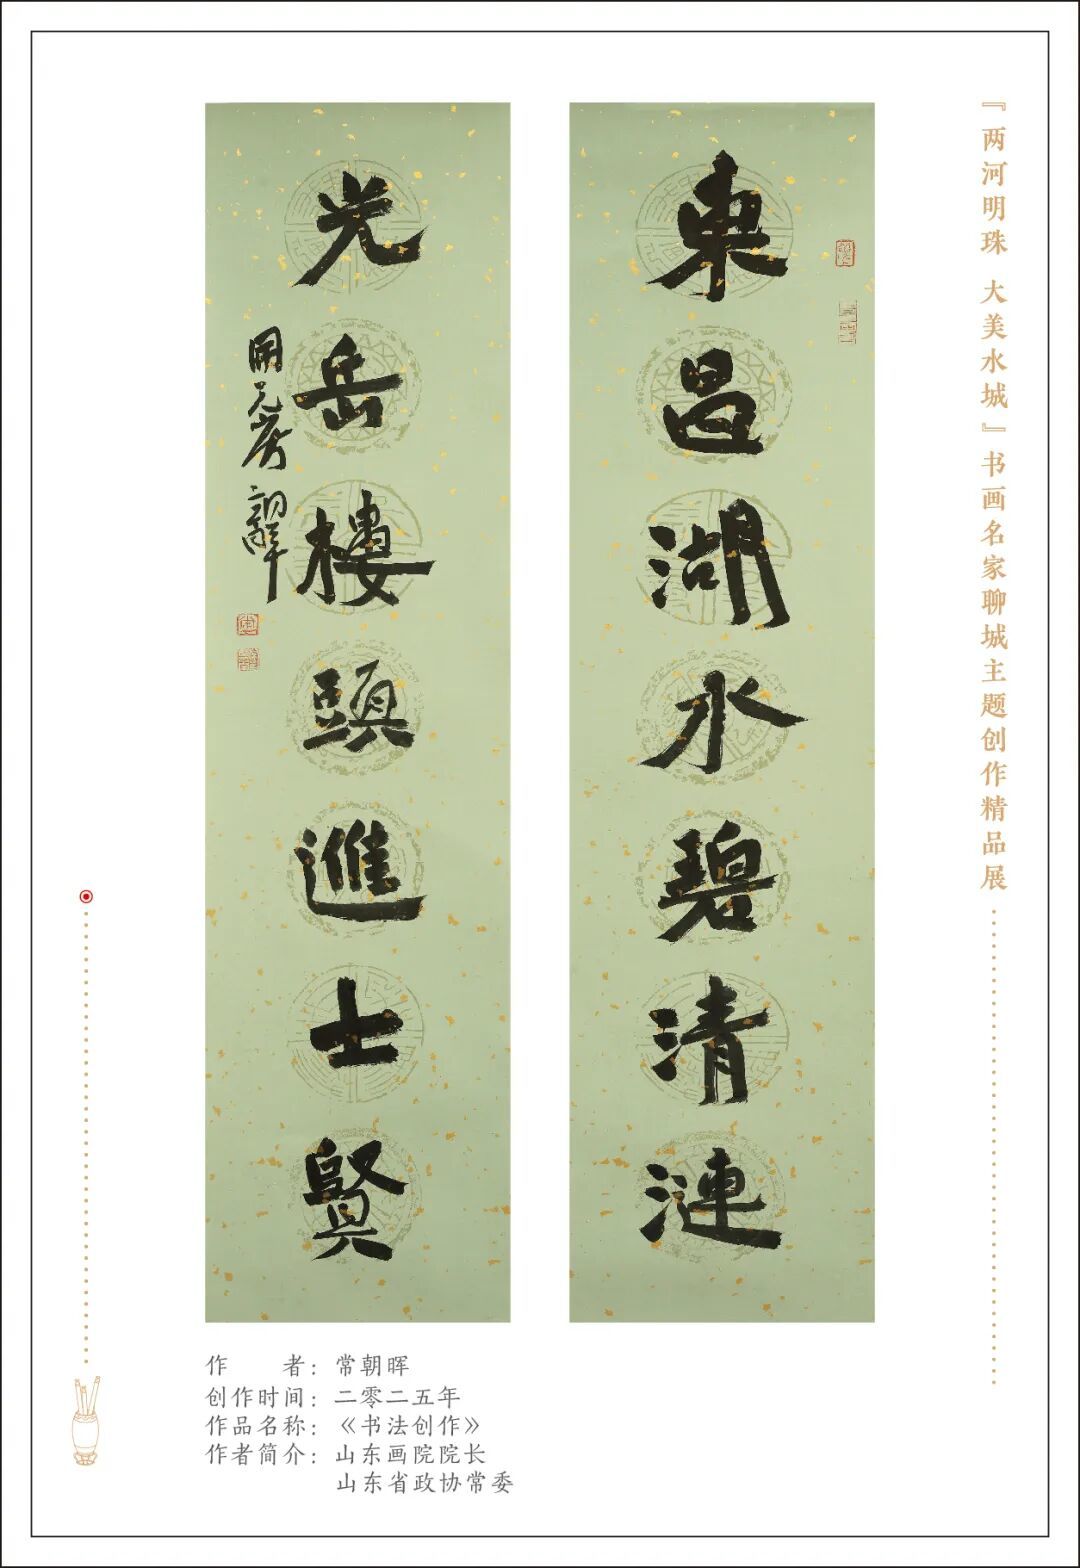 『两河明珠 大美水城』书画名家聊城主题创作精品展
東昌湖水碧清漣
光岳樓頭進士賢
作　　者：常朝晖
创作时间：二零二五年
作品名称：《书法创作》
作者简介：山东画院院长
山东省政协常委